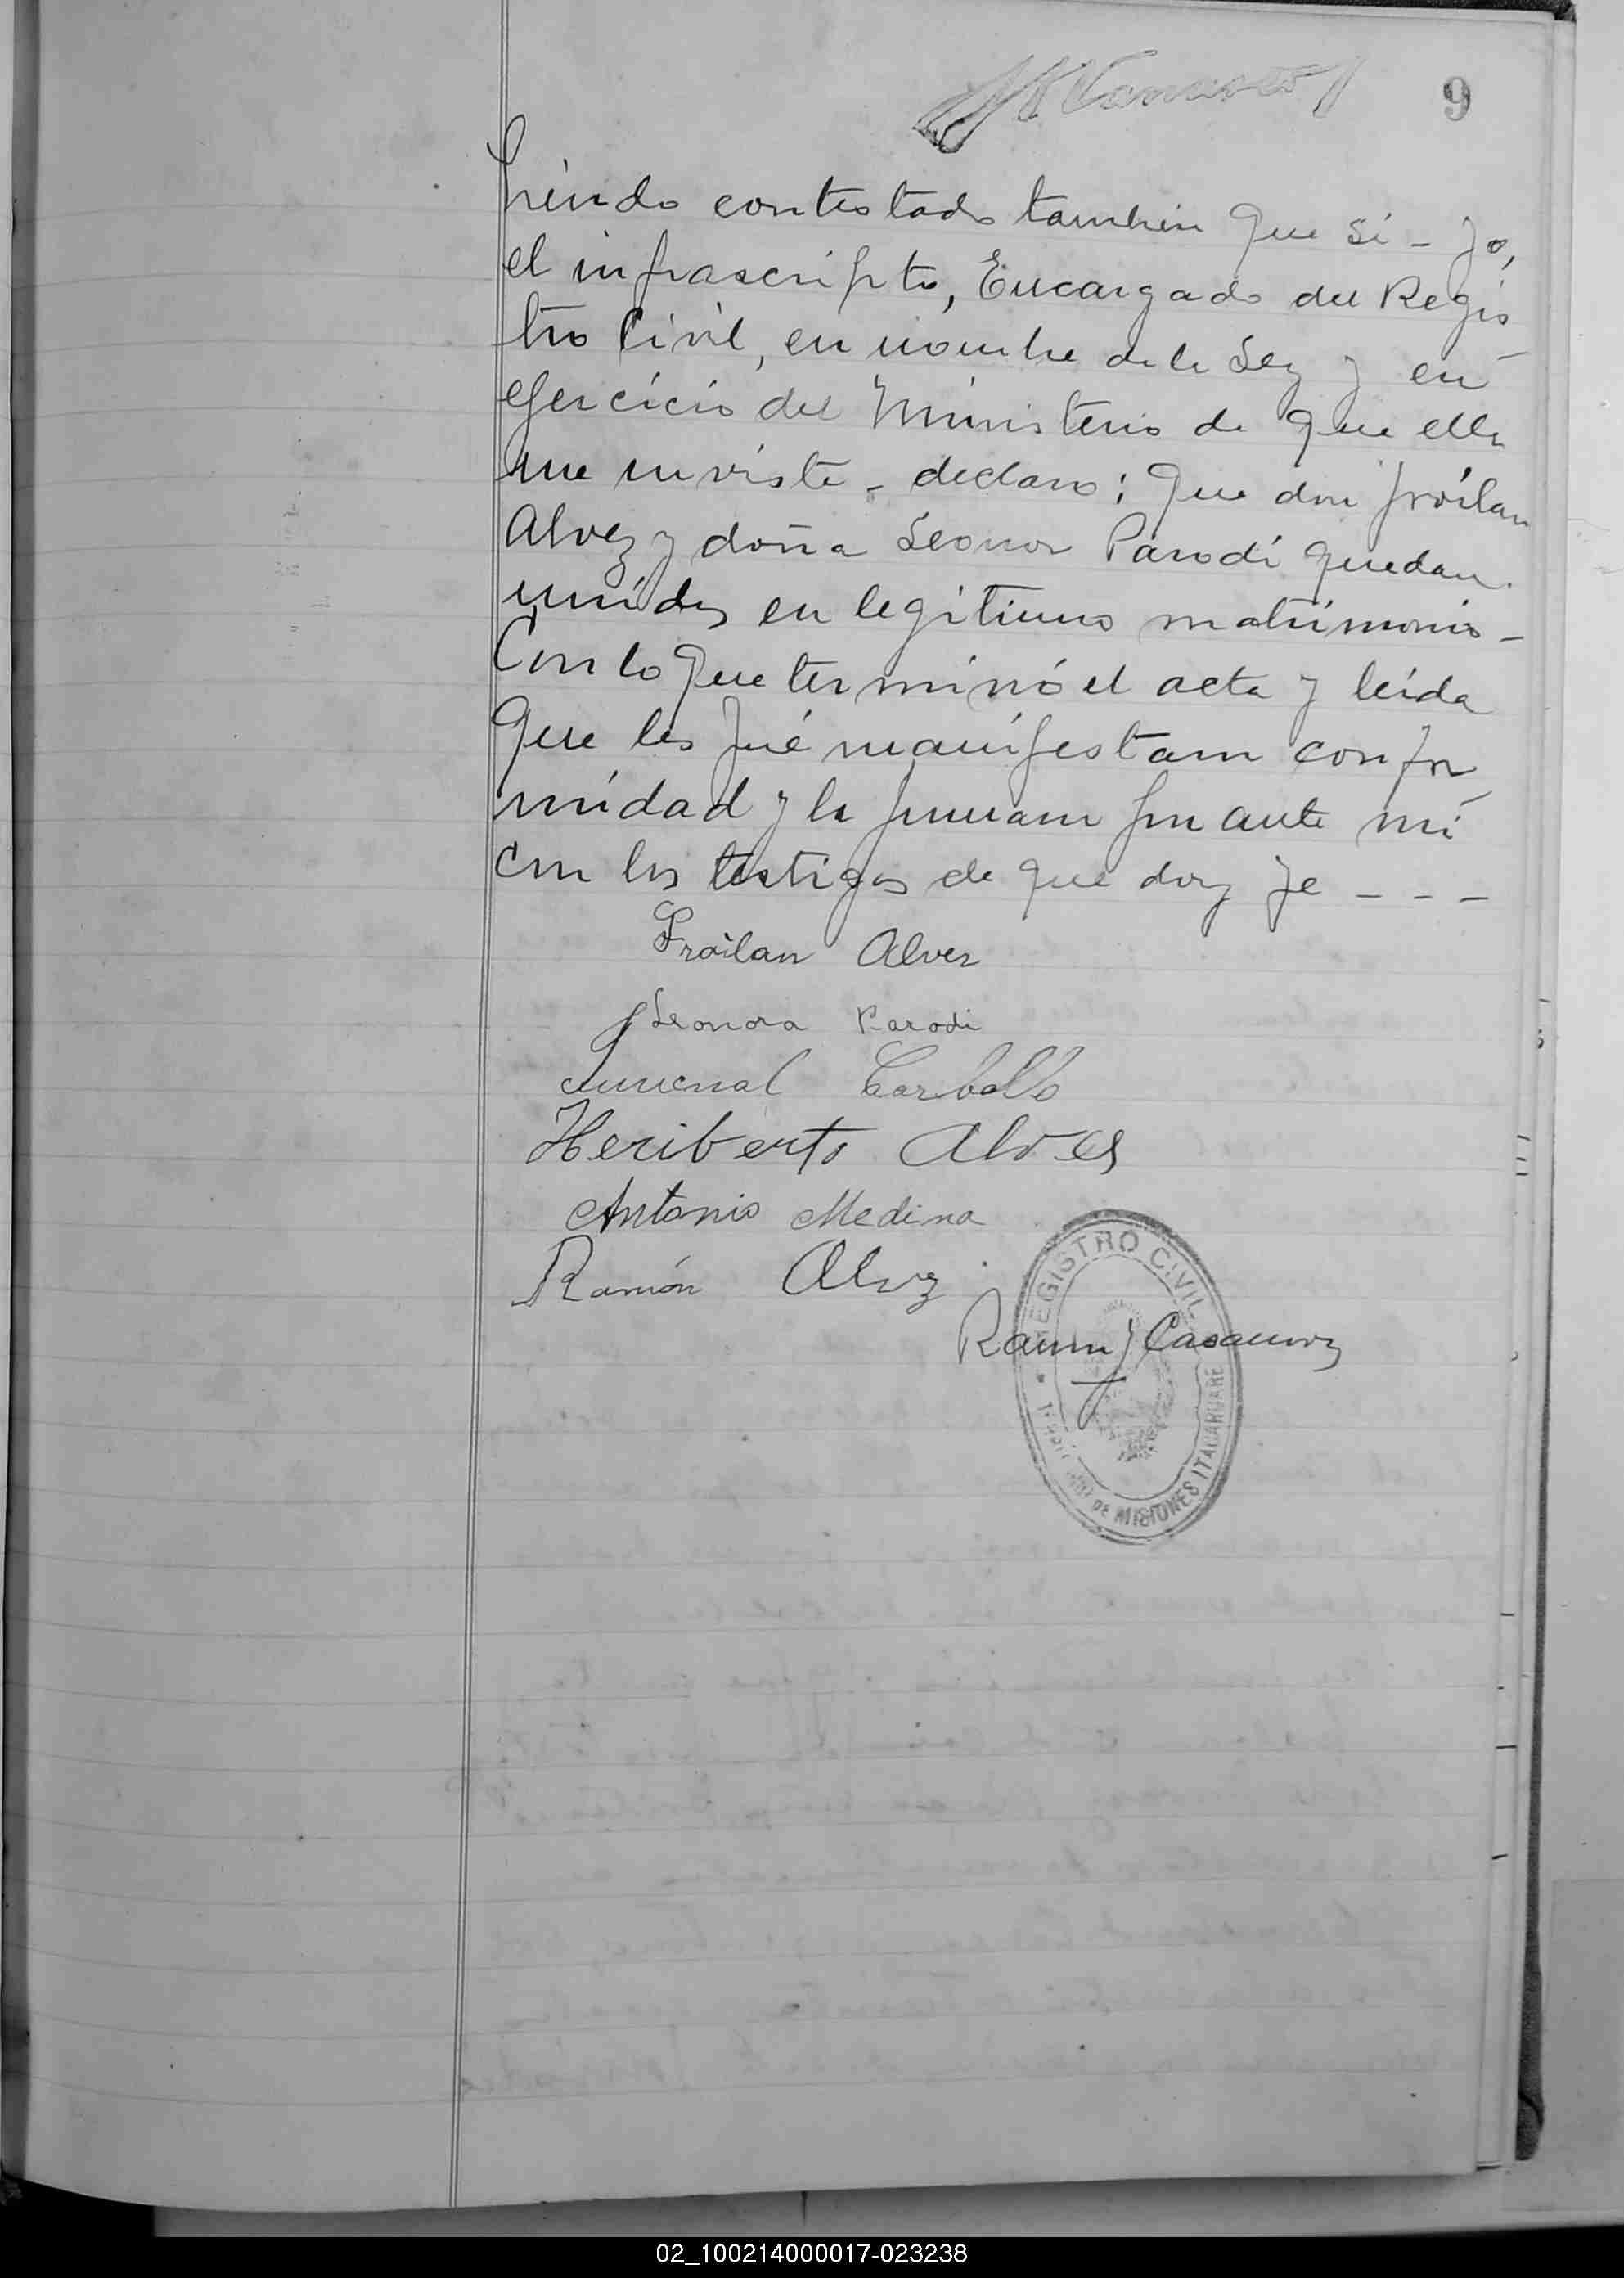 9
biendo contestado tambien que si - yo,
el infrascripto, Encargado del Regis
tro Civil, en nombre de la Ley y en
ejercicio del Ministerio de que ella
me inviste - declaro: que don Froilan
Alvez y doña Leonor Parodi quedan
unidos en legitimo matrimonio -
Con lo que terminó el acta y leida
que les fué manifestaron confor
midad y la firmaron por ante mi
con los testigos de que doy fe - - -
Froilan Alvez
Leonora Parodi
Juvenal Carballo
Heriberto Alves
Antonio Medina
Ramón Alvez
REGISTRO CIVIL
Ramon J Casanova
DE MISIONES ITACARUARE
02_100214000017-023238